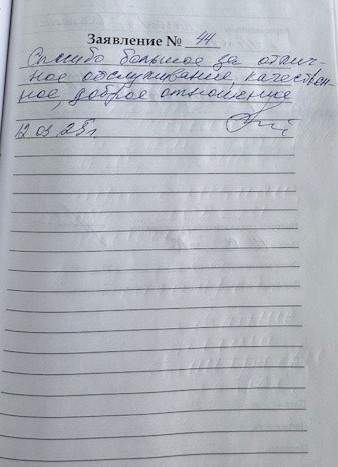 Заявление № 44
Спасибо большое за отлич-
ное обслуживание, качествен-
ное, доброе отношение
12 03 25г.